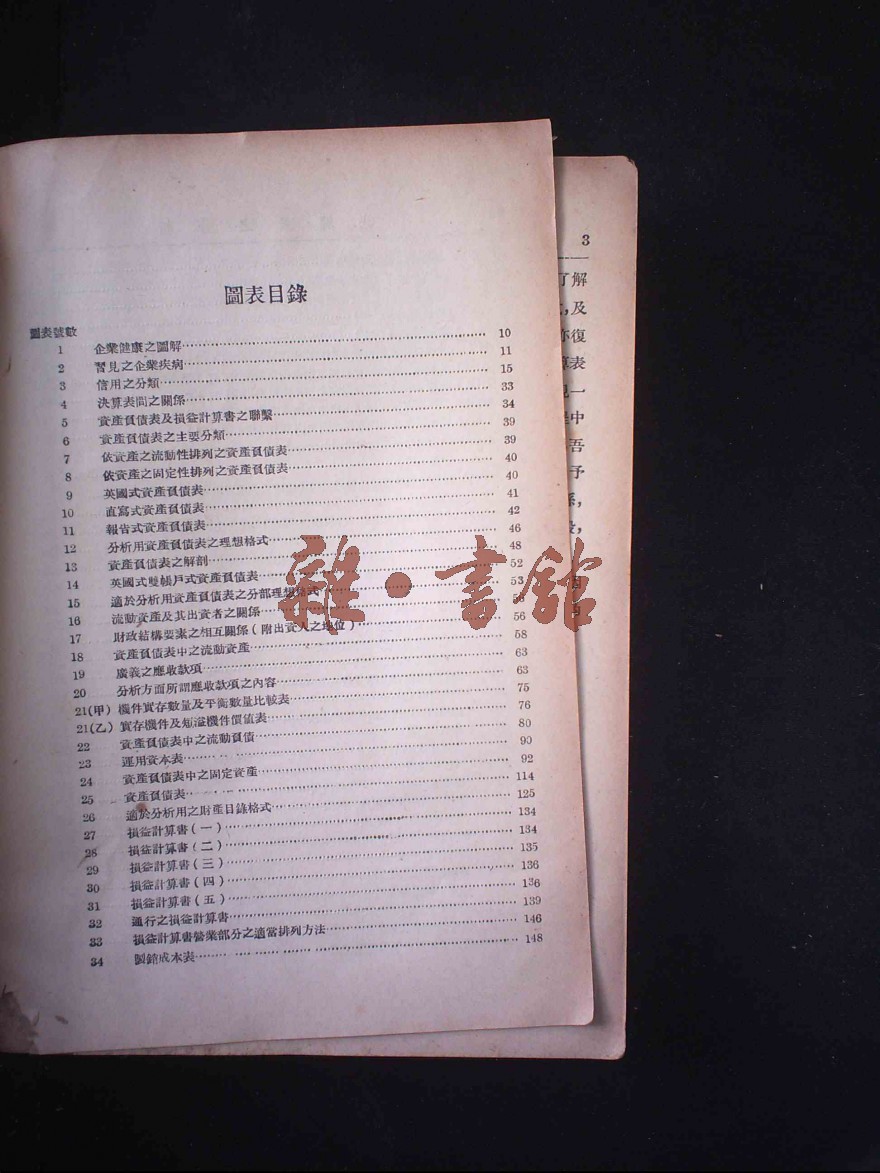 圖表目錄
圖表號數
1 企業健康之圖解 10
2 習見之企業疾病 11
3 信用之分類 15
4 決算表間之關係 33
5 資產負債表及損益計算書之聯繫 34
6 資產負債表之主要分類 39
7 依資產之流動性排列之資產負債表 39
8 依資產之固定性排列之資產負債表 40
9 英國式資產負債表 40
10 直寫式資產負債表 41
11 報告式資產負債表 42
12 分析用資產負債表之理想格式 46
13 資產負債表之解剖 48
14 英國式雙帳戶式資產負債表 52
15 適於分析用資產負債表之分部理想格式 53
16 流動資產及其出資者之關係 56
17 財政結構要素之相互關係(附出資人之地位) 56
18 資產負債表中之流動資產 58
19 廣義之應收款項 63
20 分析方面所謂應收款項之內容 63
21(甲) 機件實存數量及平衡數量比較表 75
21(乙) 實存機件及短溢機件價值表 76
22 資產負債表中之流動負債 80
23 運用資本表 90
24 資產負債表中之固定資產 92
25 資產負債表 114
26 適於分析用之財產目錄格式 125
27 損益計算書(一) 134
28 損益計算書(二) 134
29 損益計算書(三) 135
30 損益計算書(四) 136
31 損益計算書(五) 136
32 通行之損益計算書 139
33 損益計算書營業部分之適當排列方法 146
34 製銷成本表 148
3
了解
,及
亦復
算表
一
中
吾
予
係,
雜·書館